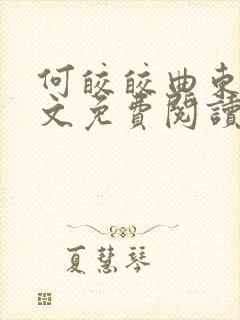 何皎皎曲東
文免費閱讀
夏慧琴